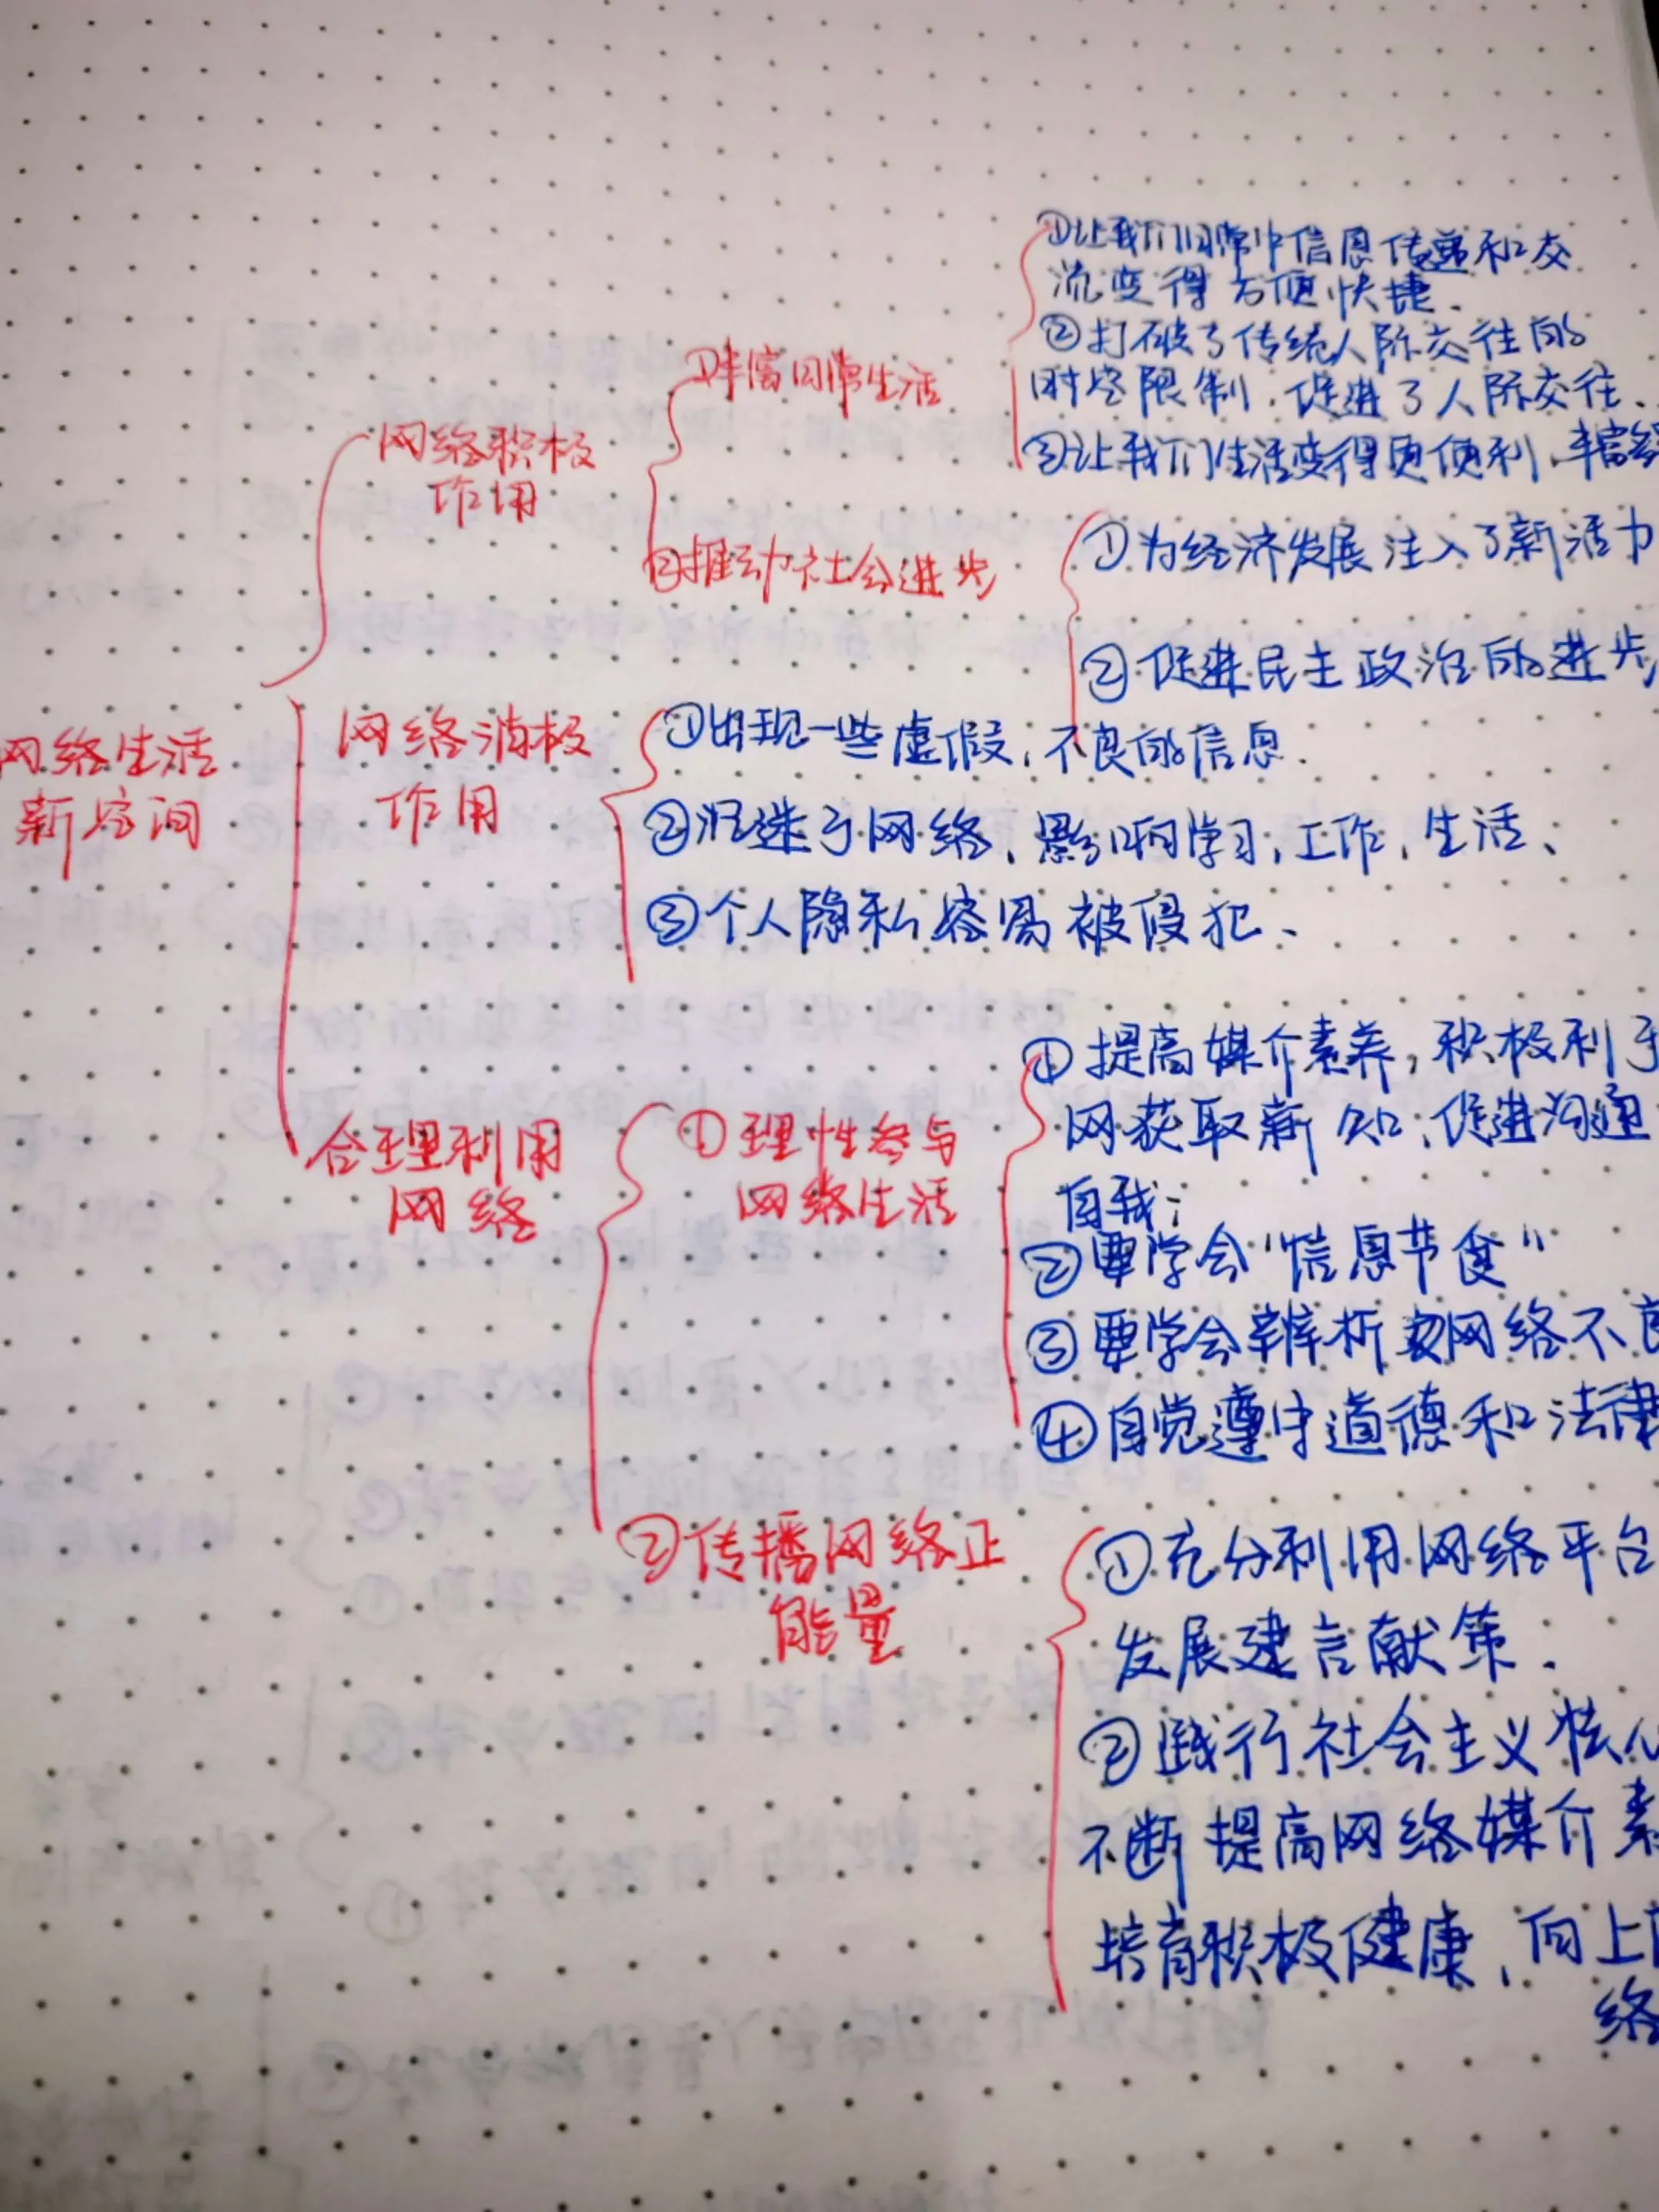 网络生活
新空间
网络积极
作用
①丰富日常生活
①让我们日常中信息传递和交
流变得方便快捷.
②打破了传统人际交往的
时空限制,促进了人际交往、
③让我们生活变得更便利、丰富
②推动社会进步
①为经济发展注入了新活力
②促进民主政治的进步
网络消极
作用
①出现一些虚假,不良的信息.
②沉迷于网络、影响学习,工作,生活、
③个人隐私容易被侵犯、
合理利用
网络
①理性参与
网络生活
①提高媒介素养,积极利
网获取新知,促进沟通
自我;
②要学会“信息节食”
③要学会辨析网络不
④自觉遵守道德和法律
②传播网络正
能量
①充分利用网络平台
发展建言献策.
②践行社会主义核
不断提高网络媒介素
培育积极健康、向上
络